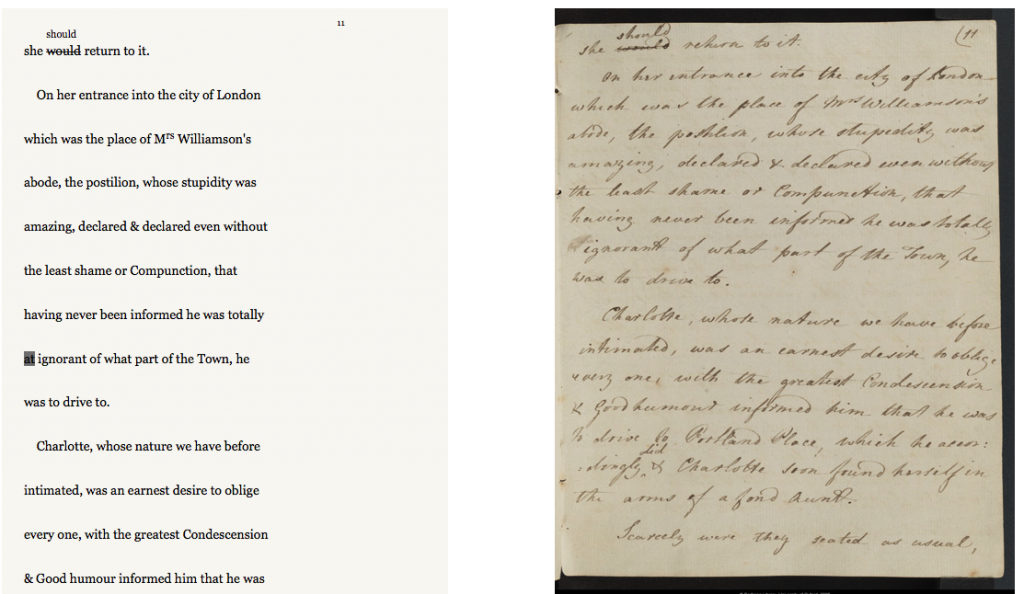 11
should
she would return to it.
On her entrance into the city of London
which was the place of Mrs Williamson's
abode, the postilion, whose stupidity was
amazing, declared & declared even without
the least shame or Compunction, that
having never been informed he was totally
at ignorant of what part of the Town, he
was to drive to.
Charlotte, whose nature we have before
intimated, was an earnest desire to oblige
every one, with the greatest Condescension
& Good humour informed him that he was
(11
should
she would return to it.
On her entrance into the city of London
which was the place of Mrs Williamson's
abode, the postilion, whose stupidity was
amazing, declared & declared even without
the least shame or Compunction, that
having never been informed he was totally
ignorant of what part of the Town, he
was to drive to.
Charlotte, whose nature we have before
intimated, was an earnest desire to oblige
every one, with the greatest Condescension
& Good humour informed him that he was
to drive to Portland Place, which he accor:
did
:dingly & Charlotte soon found herself in
the arms of a fond Aunt.
Scarcely were they seated as usual,